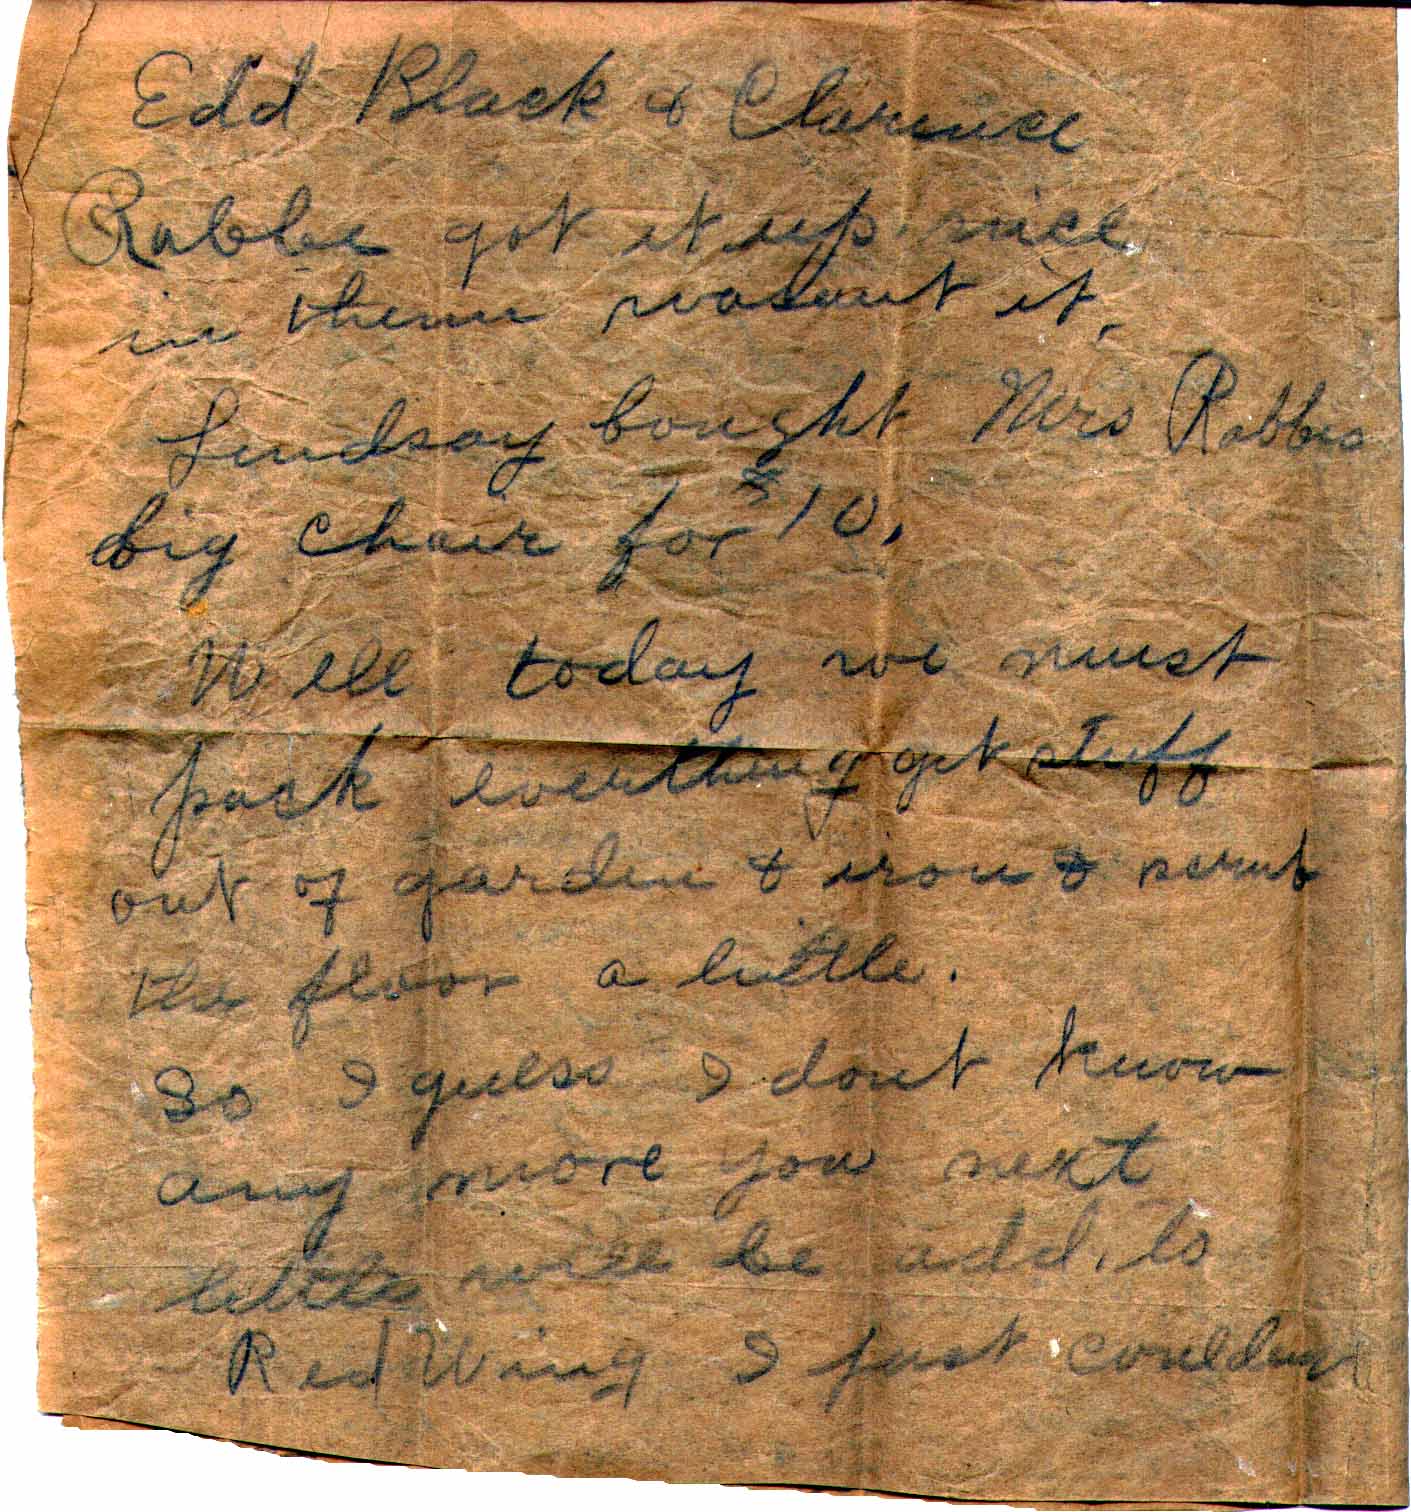 Edd Black & Clarence
Robbe got it up nice
in them wasent it.
Lindsay bought Mrs Robbes
big chair for $10.
Well today we must
pack everthing get stuff
out of garden & iron & scrub
the floor a little.
So I guess I dont know
any more you next
letter will be add. to
Red Wing I just couldent